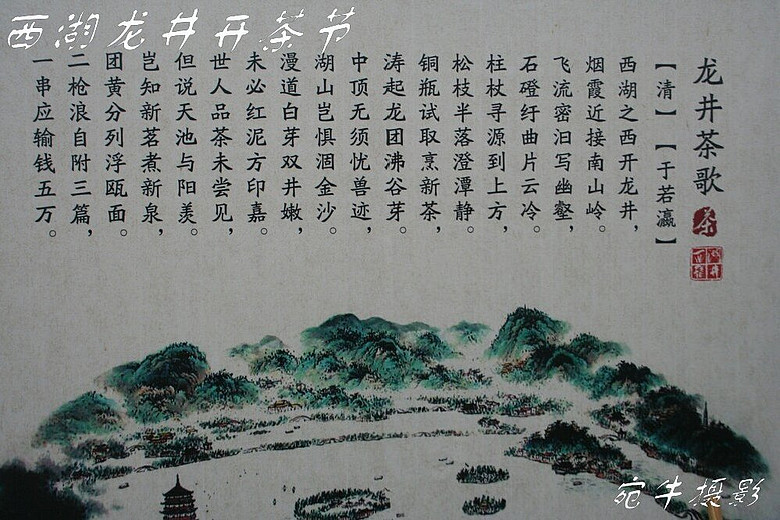 西湖龙井开茶节
龙井茶歌
【清】【于若瀛】
西湖之西开龙井，
烟霞近接南山岭。
飞流密汩写幽壑，
石磴纡曲片云冷。
柱杖寻源到上方，
松枝半落澄潭静。
铜瓶试取烹新茶，
涛起龙团沸谷芽。
中顶无须忧兽迹，
湖山岂惧涸金沙。
漫道白芽双井嫩，
未必红泥方印嘉。
世人品茶未尝见，
但说天池与阳羡。
岂知新茗煮新泉，
团黄分列浮瓯面。
二枪浪自附三篇，
一串应输钱五万。
茶
宛牛摄影